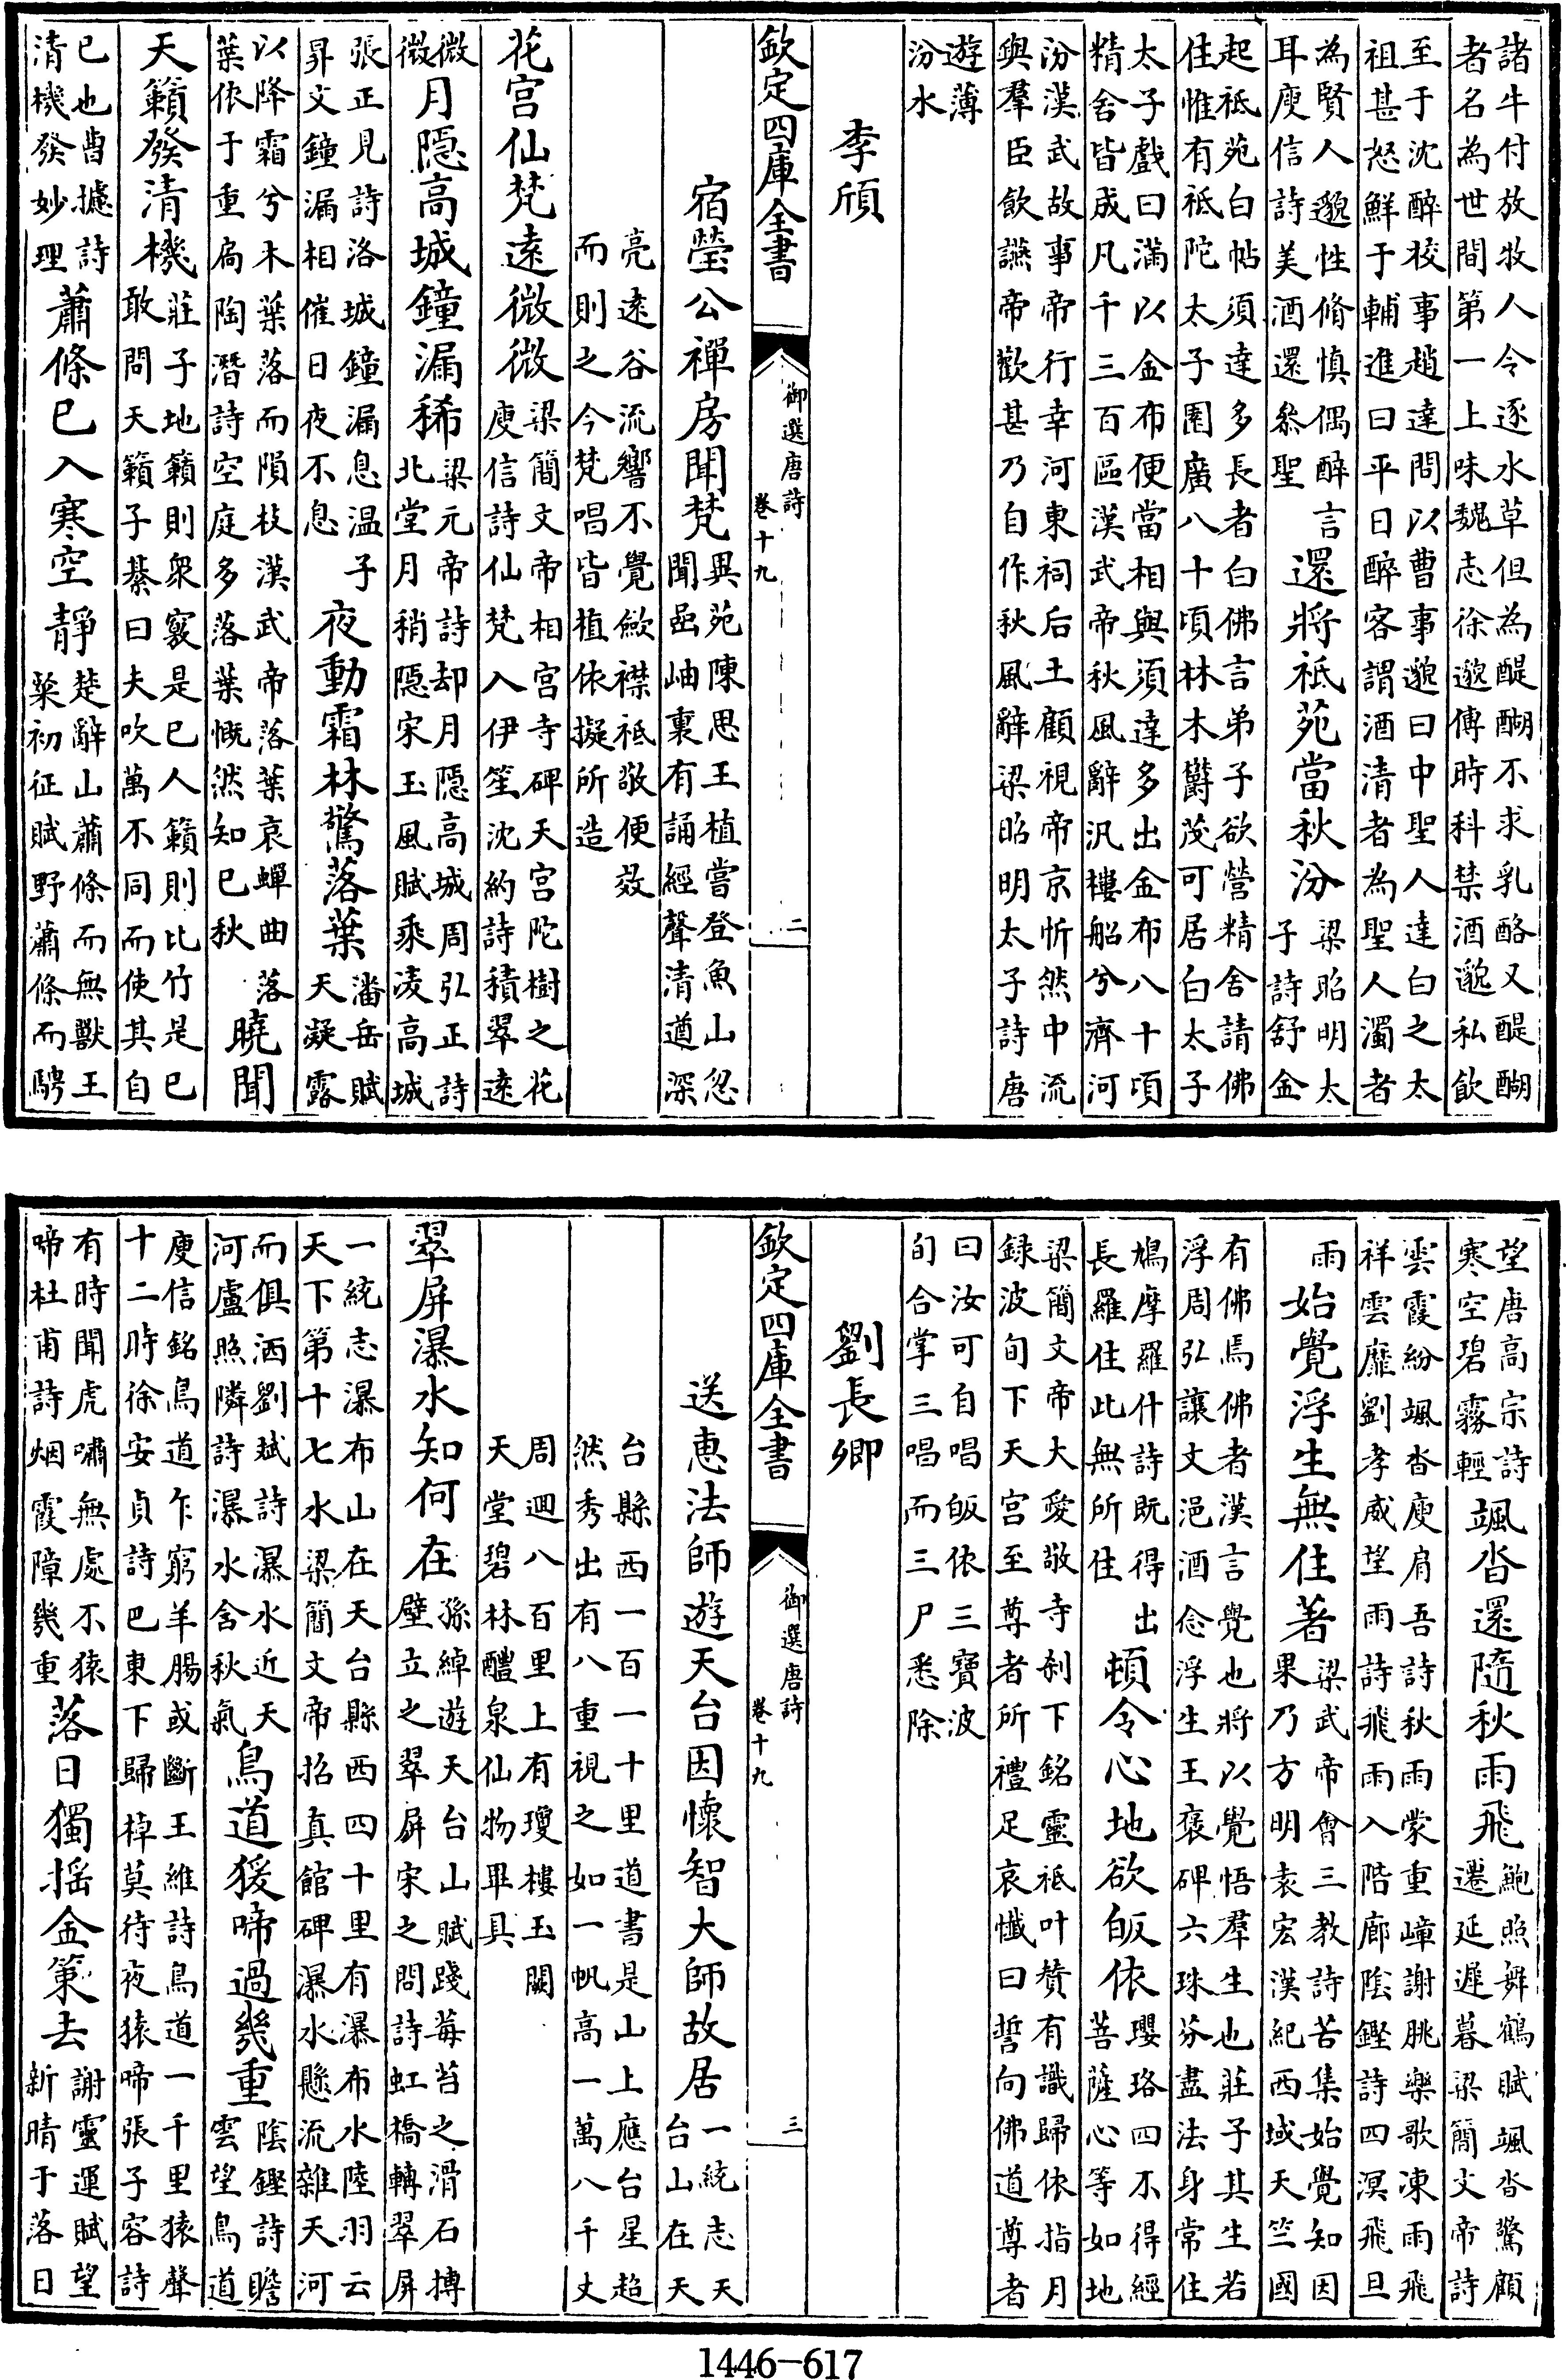 諸牛付放牧人令逐水草但為醍醐不求乳酪又醍醐
者名為世間第一上味魏志徐邈傳時科禁酒邈私飲
至于沈醉校事趙達問以曹事邈曰中聖人達白之太
祖甚怒鮮于輔進曰平日醉客謂酒清者為聖人濁者
為賢人邈性脩慎偶醉言
耳庾信詩美酒還叅聖
還將祗苑當秋汾
梁昭明太
子詩舒金
起祗苑白帖須達多長者白佛言弟子欲營精舍請佛
住惟有祗陀太子園廣八十頃林木欝茂可居白太子
太子戲曰滿以金布便當相與須達多出金布八十頃
精舍皆成凡千三百區漢武帝秋風辭汎樓船兮濟河
汾漢武故事帝行幸河東祠后土顧視帝京忻然中流
與羣臣飲讌帝歡甚乃自作秋風辭梁昭明太子詩唐
遊薄
汾水
李頎
欽定四庫全書
御選唐詩
卷十九
二
宿瑩公禪房聞梵
異苑陳思王植嘗登魚山忽
聞嵒岫裏有誦經聲清遒深
亮遠谷流響不覺歛襟祗敬便效
而則之今梵唱皆植依擬所造
花宮仙梵遠微微
梁簡文帝相宮寺碑天宮陀樹之花
庾信詩仙梵入伊笙沈約詩積翠遠
微
微
月隱高城鐘漏稀
梁元帝詩却月隱高城周弘正詩
北堂月稍隱宋玉風賦乘凌高城
張正見詩洛城鐘漏息溫子
昇文鐘漏相催日夜不息
夜動霜林驚落葉
潘岳賦
天凝露
以降霜兮木葉落而隕枝漢武帝落葉哀蟬曲落
葉依于重扃陶潛詩空庭多落葉慨然知已秋
曉聞
天籟發清機
莊子地籟則衆竅是已人籟則比竹是已
敢問天籟子綦曰夫吹萬不同而使其自
已也曹攄詩
清機發妙理
蕭條已入寒空靜
楚辭山蕭條而無獸王
粲初征賦野蕭條而騁
望唐高宗詩
寒空碧霧輕
颯沓還隨秋雨飛
鮑照舞鶴賦颯沓驚顧
遷延遲暮梁簡文帝詩
雲霞紛颯沓庾肩吾詩秋雨蒙重嶂謝朓樂歌凍雨飛
祥雲靡劉孝威望雨詩飛雨入階廊陰鏗詩四溟飛旦
雨
始覺浮生無住著
梁武帝會三教詩苦集始覺知因
果乃方明袁宏漢紀西域天竺國
有佛焉佛者漢言覺也將以覺悟羣生也莊子其生若
浮周弘讓文浥酒念浮生王褒碑六珠芬盡法身常住
鳩摩羅什詩既得出
長羅住此無所住
頓令心地欲皈依
瓔珞四不得經
菩薩心等如地
梁簡文帝大愛敬寺剎下銘靈祗叶贊有識歸依指月
録波旬下天宮至尊者所禮足哀懺曰誓向佛道尊者
曰汝可自唱皈依三寶波
旬合掌三唱而三尸悉除
劉長卿
欽定四庫全書
御選唐詩
卷十九
三
送惠法師遊天台因懷智大師故居
一統志天
台山在天
台縣西一百一十里道書是山上應台星超
然秀出有八重視之如一帆高一萬八千丈
周迴八百里上有瓊樓玉闕
天堂碧林醴泉仙物畢具
翠屏瀑水知何在
孫綽遊天台山賦踐莓苔之滑石搏
壁立之翠屏宋之問詩虹橋轉翠屏
一統志瀑布山在天台縣西四十里有瀑布水陸羽云
天下第十七水梁簡文帝招真館碑瀑水懸流雜天河
而俱洒劉斌詩瀑水近天
河盧照隣詩瀑水含秋氣
鳥道猨啼過幾重
陰鏗詩瞻
雲望鳥道
庾信銘鳥道乍窮羊腸或斷王維詩鳥道一千里猿聲
十二時徐安貞詩巴東下歸棹莫待夜猿啼張子容詩
有時聞虎嘯無處不猿
啼杜甫詩烟霞障幾重
落日獨搖金策去
謝靈運賦望
新晴于落日
1446-617